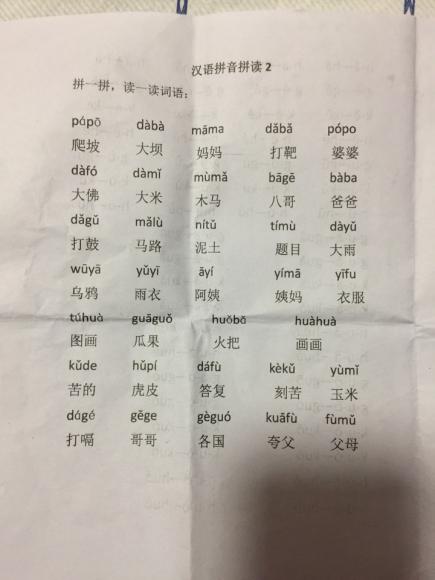 汉语拼音拼读 2
拼一拼，读一读词语：
pápō dàbà māma dǎbǎ pópo
爬坡 大坝 妈妈 打靶 婆婆
dàfó dàmǐ mùmǎ bāgē bàba
大佛 大米 木马 八哥 爸爸
dǎgǔ mǎlù nítǔ tímù dàyǔ
打鼓 马路 泥土 题目 大雨
wūyā yǔyī āyí yímā yīfu
乌鸦 雨衣 阿姨 姨妈 衣服
túhuà guāguǒ huǒbǎ huàhuà
图画 瓜果 火把 画画
kǔde hǔpí dáfù kèkǔ yùmǐ
苦的 虎皮 答复 刻苦 玉米
dágé gēge gèguó kuāfù fùmǔ
打嗝 哥哥 各国 夸父 父母